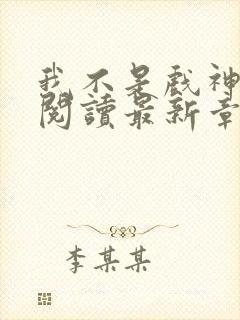 我不是戲神
閱讀最新章
李某某